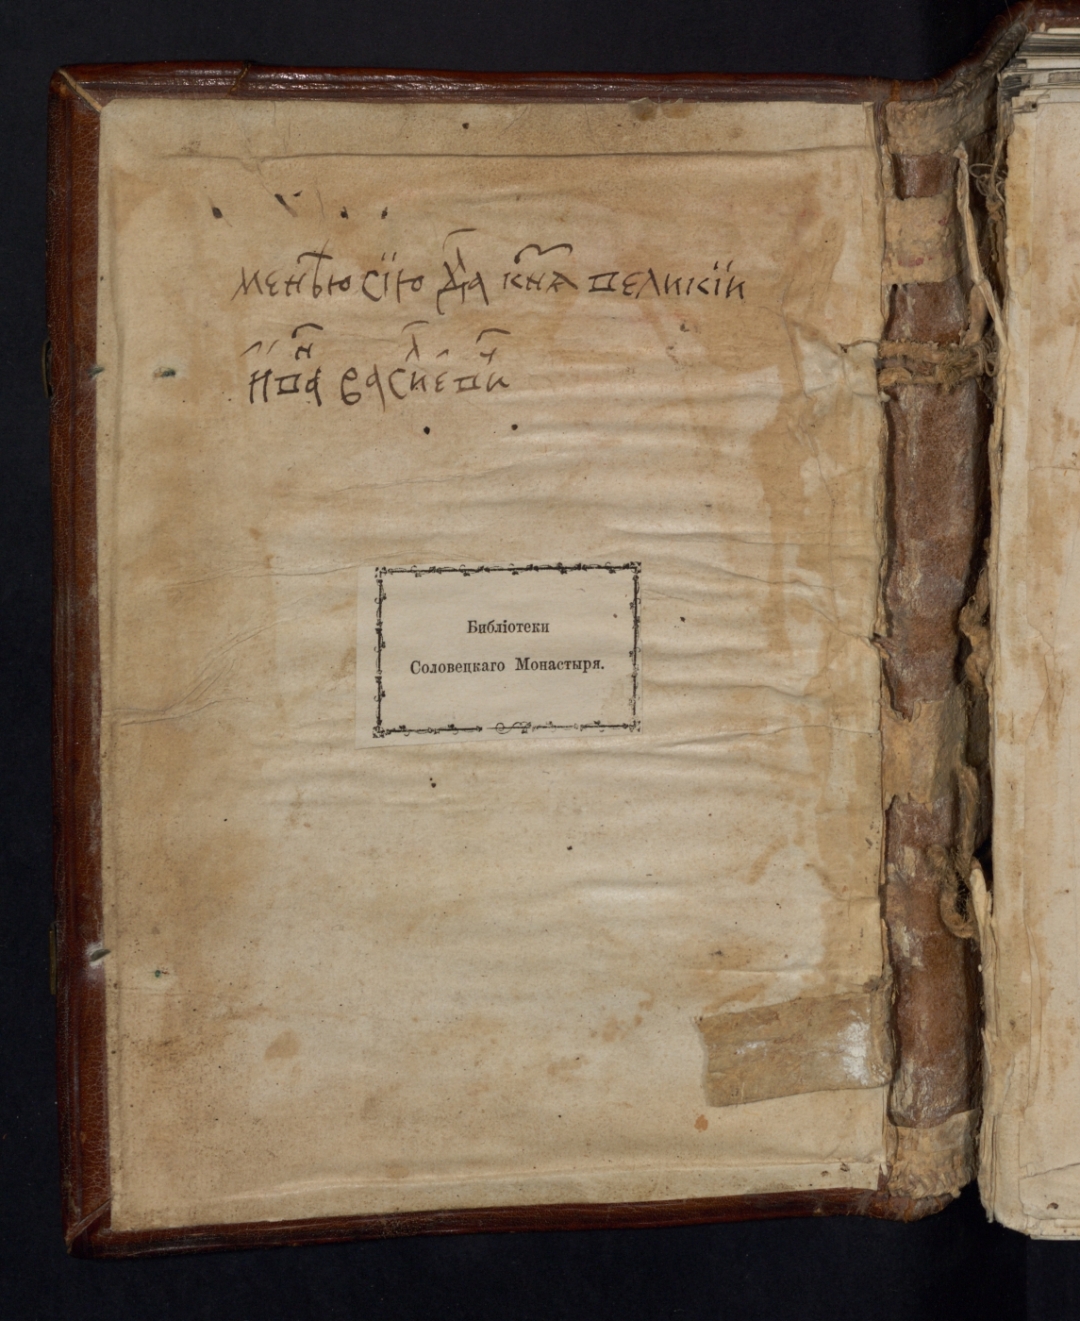 менѣю сїю да кнѧ великїи
ива васиеви
Библіотеки
Соловецкаго Монастыря.